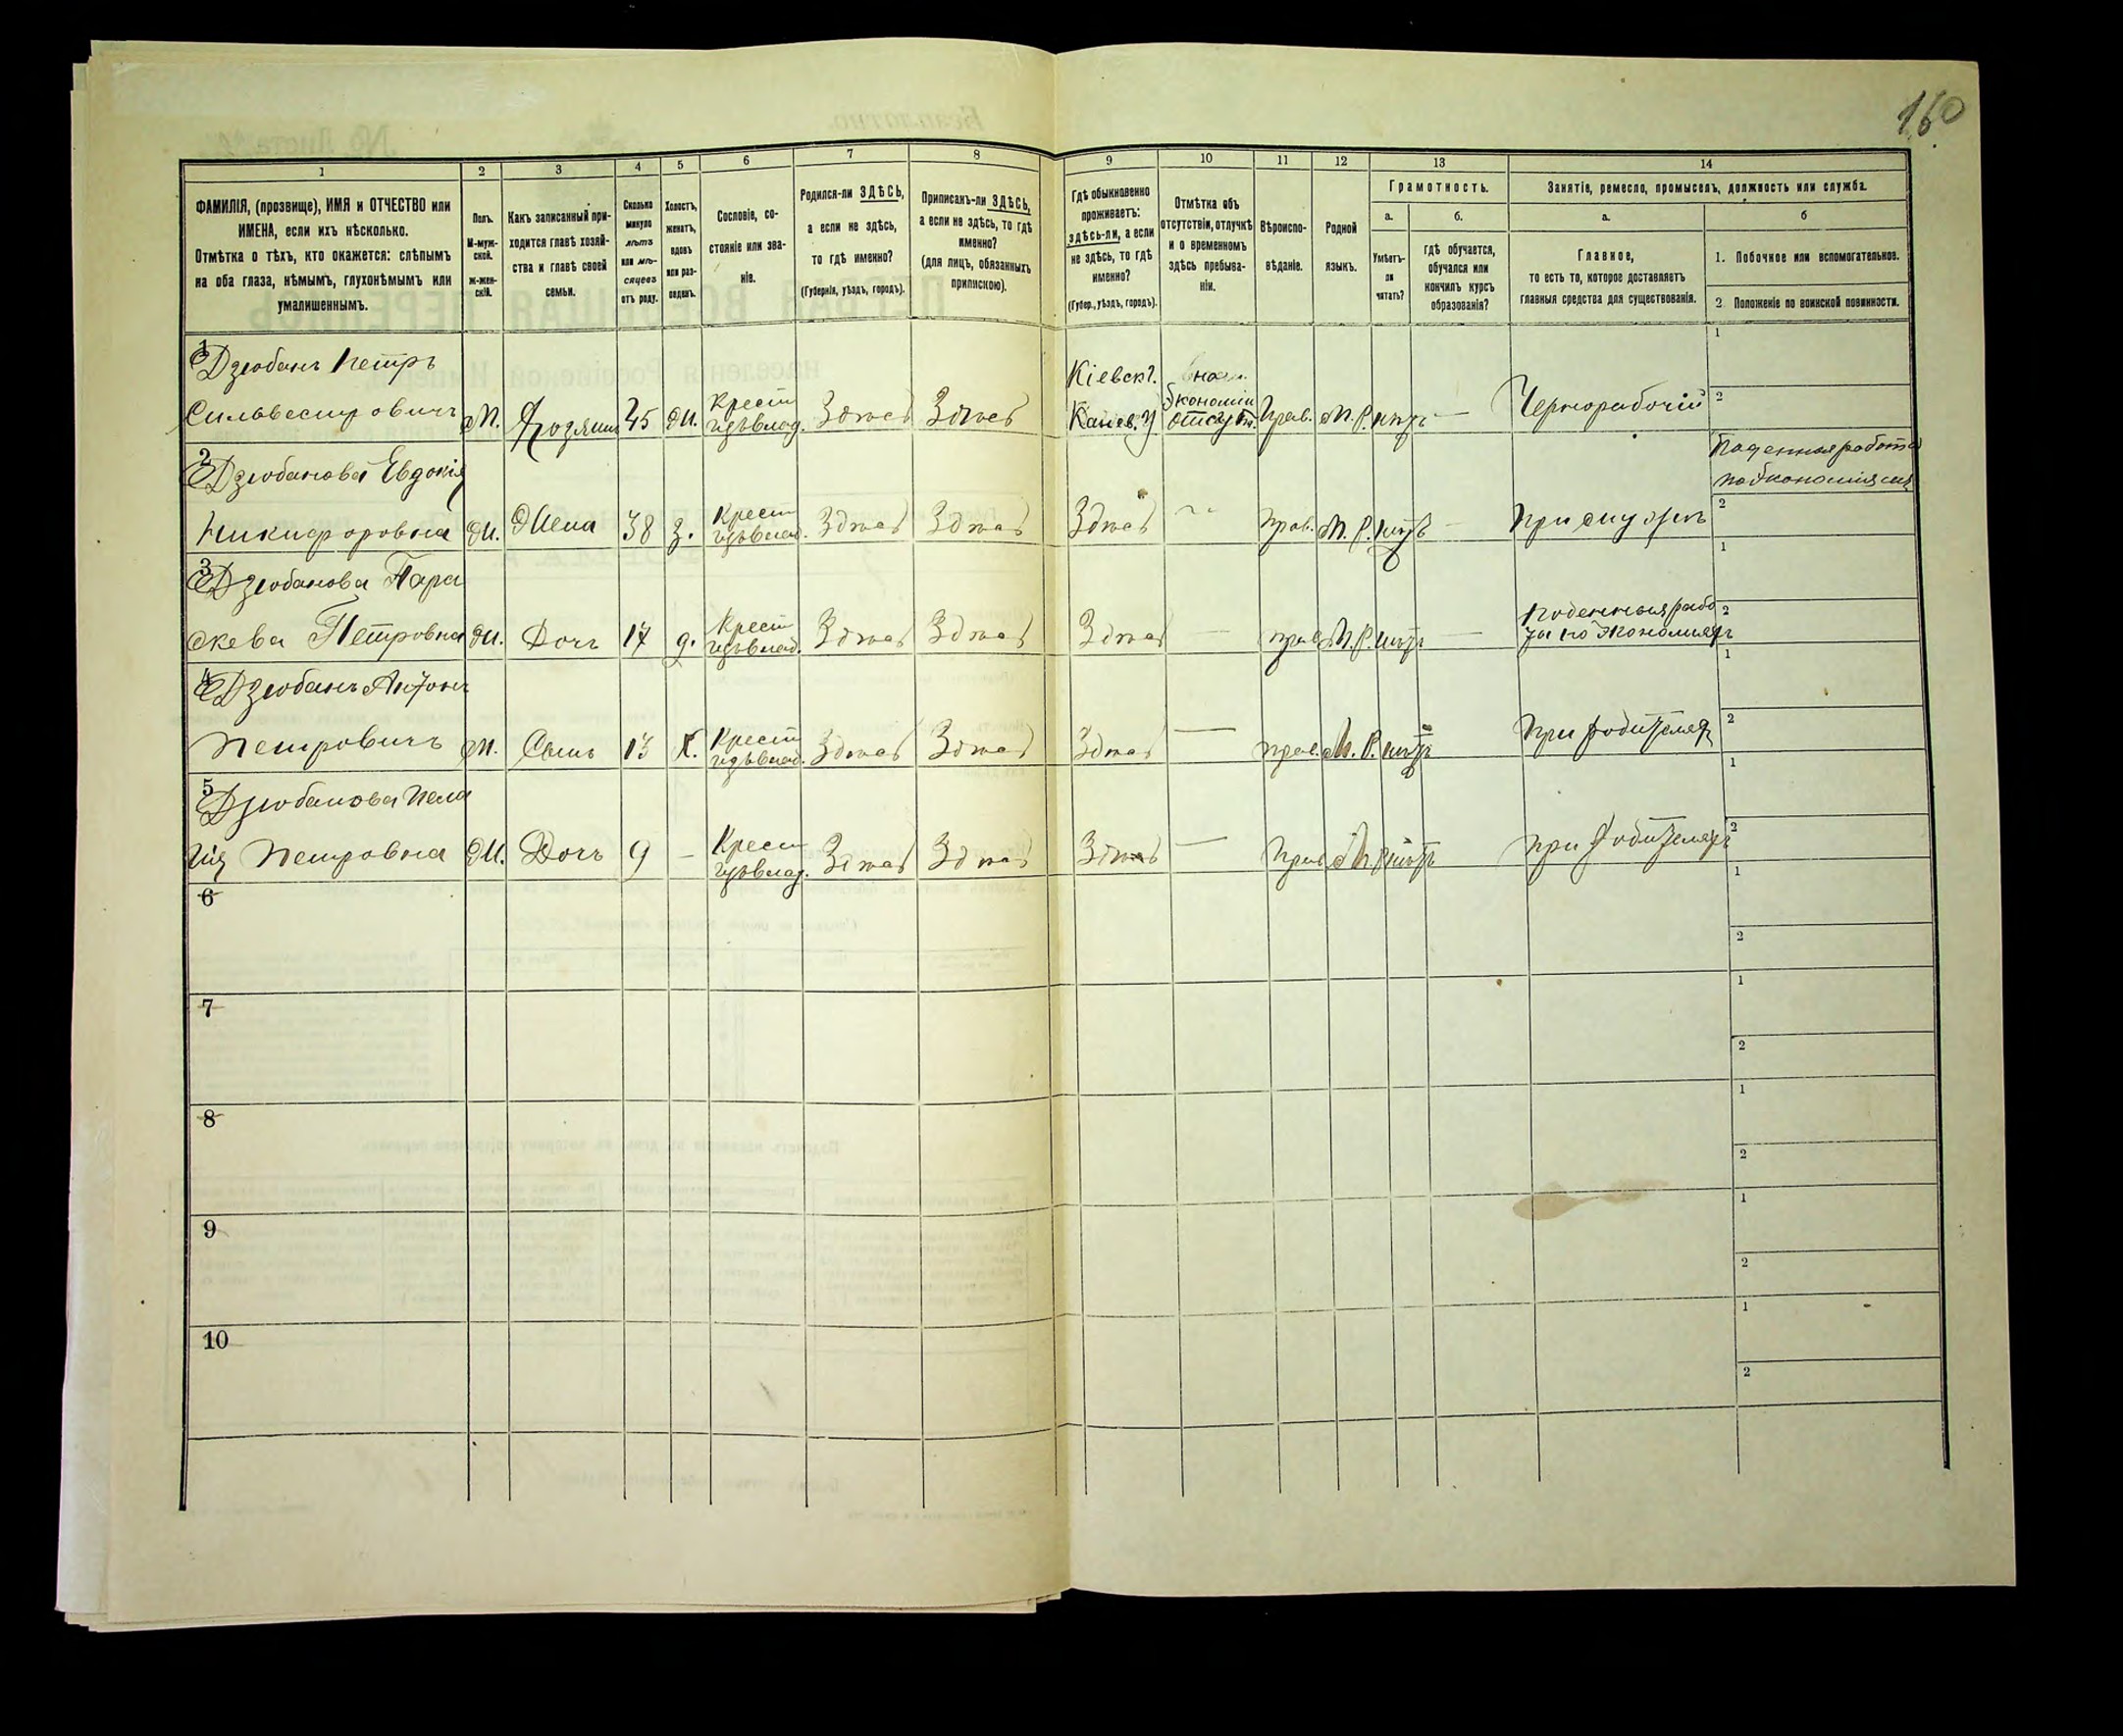 160
1 2 3 4 5 6 7 8 9 10 11 12 13 14
ФАМИЛІЯ, (прозвище), ИМЯ и ОТЧЕСТВО или
ИМЕНА, если ихъ нѣсколько.
Отмѣтка о тѣхъ, кто окажется: слѣпымъ
на оба глаза, нѣмымъ, глухонѣмымъ или
умалишеннымъ.
Полъ.
М-муж-
ской.
ж-жен-
скій.
Какъ записанный при-
ходится главѣ хозяй-
ства и главѣ своей
семьи.
Сколько
минуло
лѣтъ
или мѣ-
сяцевъ
отъ роду.
Холостъ,
женатъ,
вдовъ
или раз-
веденъ.
Сословіе, со-
стояніе или зва-
ніе.
Родился-ли ЗДѢСЬ,
а если не здѣсь,
то гдѣ именно?
(Губернія, уѣздъ, городъ).
Приписанъ-ли ЗДѢСЬ,
а если не здѣсь, то гдѣ
именно?
(для лицъ, обязанныхъ
припискою).
Гдѣ обыкновенно
проживаетъ:
здѣсь-ли, а если
не здѣсь, то гдѣ
именно?
(Губер., уѣздъ, городъ).
Отмѣтка объ
отсутствіи, отлучкѣ
и о временномъ
здѣсь пребыва-
ніи.
Вѣроиспо-
вѣданіе.
Родной
языкъ.
Грамотность.
а.
Умѣетъ-
ли
читать?
б.
гдѣ обучается,
обучался или
кончилъ курсъ
образованія?
Занятіе, ремесло, промыселъ, должность или служба.
а.
Главное,
то есть то, которое доставляетъ
главныя средства для существованія.
б
1. Побочное или вспомогательное.
2 Положеніе по воинской повинности.
1
Дзюбанъ Петръ
Сильвестровичъ М. Хозяинъ 45 Ж. Крест. изъ влад. Здѣсь Здѣсь Кіевск г. Канев. У Экономіи отсут. Прав. М. Р. нѣтъ — Чернорабочій
2
Дзюбанова Евдокія
Никифоровна Ж. Жена 38 З. Крест. изъ влад. Здѣсь Здѣсь Здѣсь прав. М. Р. нѣтъ — При мужѣ Поденная работа по экономіямъ
3
Дзюбанова Пара
скева Петровна Ж. Дочь 17 д. Крест. изъ влад. Здѣсь Здѣсь Здѣсь — прав. М. Р. нѣтъ — Поденная рабо
та по экономіяхъ
4
Дзюбанъ Антонъ
Петровичъ М. Сынъ 13 Х. Крест. изъ влад. Здѣсь Здѣсь Здѣсь — прав. М. Р. нѣтъ При родителяхъ
5
Дзюбанова Пела
гія Петровна Ж. Дочь 9 — Крест. изъ влад. Здѣсь Здѣсь Здѣсь — Прав. М. Р. нѣтъ при родителяхъ
6
7
8
9
10